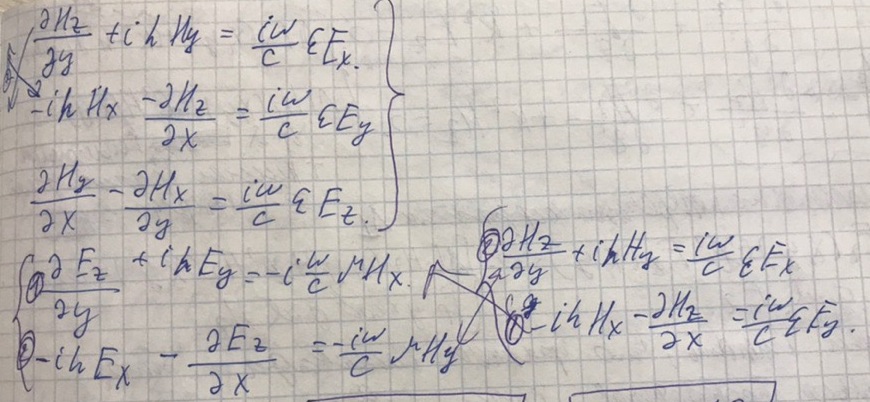 ∂Hz/∂y + ihHy = iω/c εEx.
-ihHx - ∂Hz/∂x = iω/c εEy
∂Hy/∂x - ∂Hx/∂y = iω/c εEz.
① ∂Ez/∂y + ihEy = -i ω/c μHx.
② -ihEx - ∂Ez/∂x = -iω/c μHy
② ∂Hz/∂y + ihHy = iω/c εEx
① -ihHx - ∂Hz/∂x = iω/c εEy.